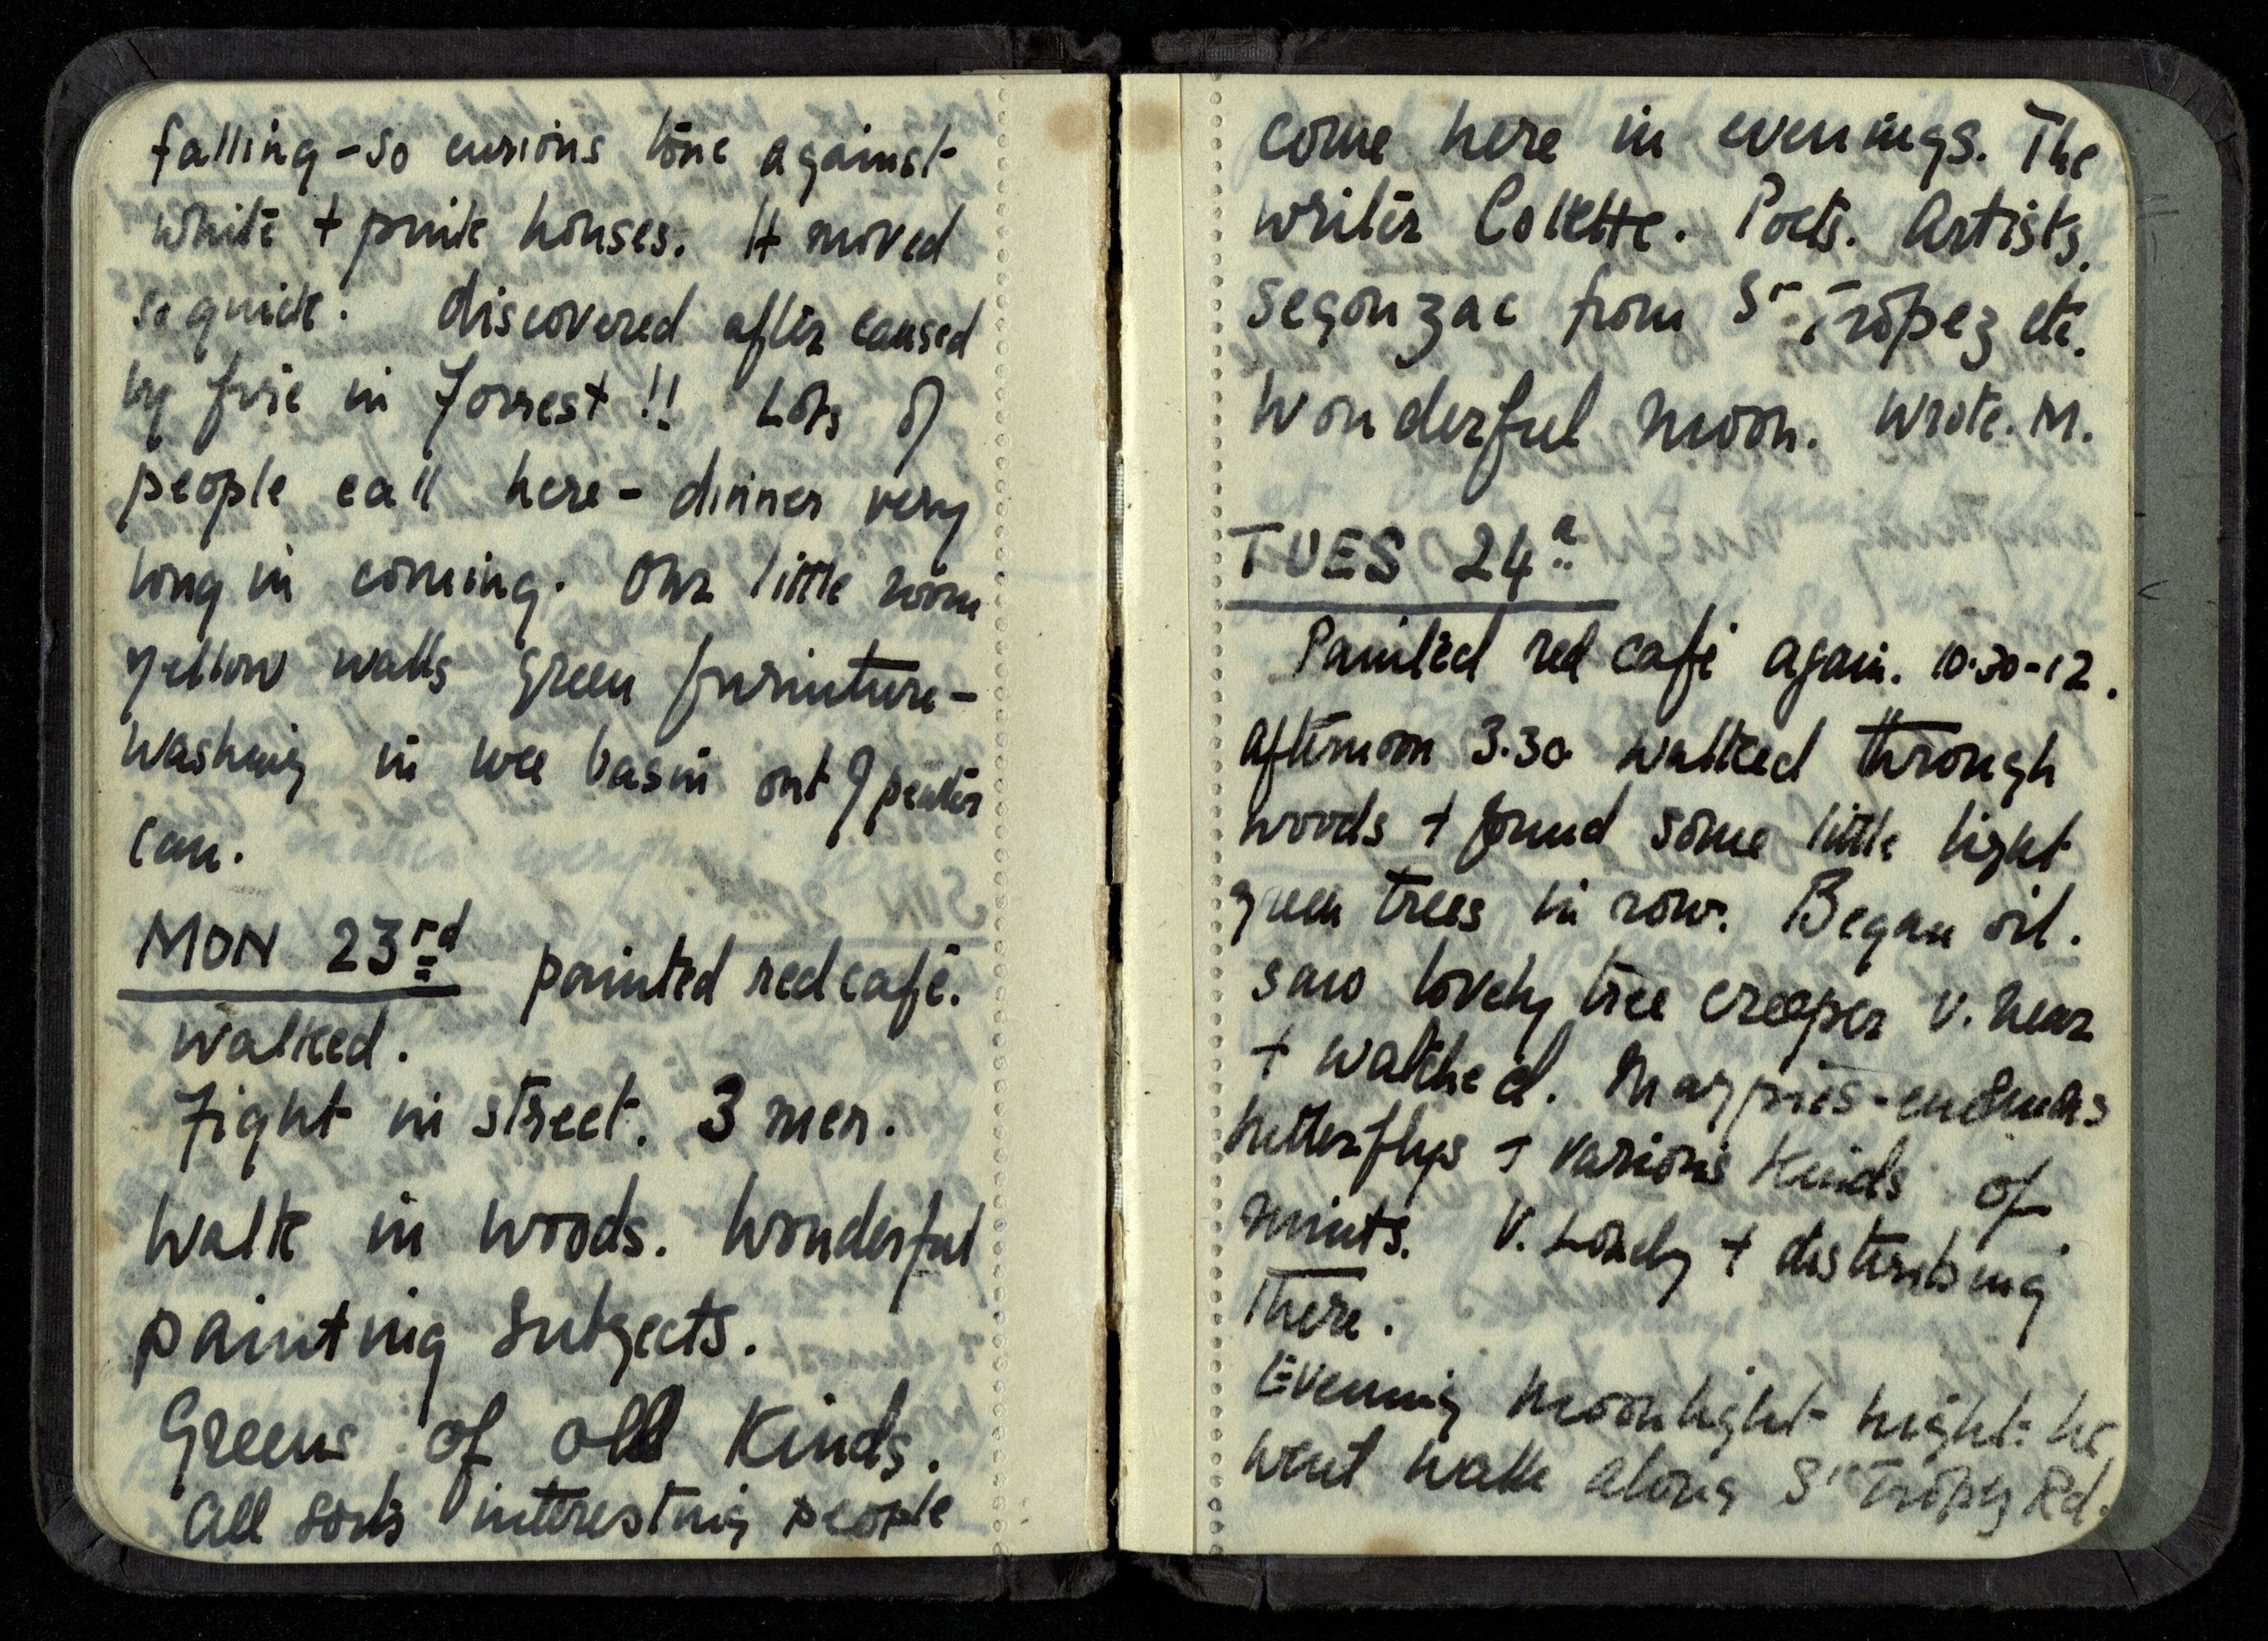 falling – so curious tone against
white + pink houses. It moved
so quick. discovered after caused
by fire in Forrest !! Lots of
people call here – dinner very
long in coming. Our little room
yellow walls green furniture –
washing in wee basin out of pewter
can.
MON 23rd painted red café.
walked.
Fight in street. 3 men.
Walk in woods. Wonderful
painting subjects.
Greens of all kinds.
All sorts interesting people
come here in evenings. The
writer Collette. Poets. Artists.
Segonzac from St Tropez etc.
Wonderful moon. Wrote. M.
TUES 24
Painted red café again. 10.30-12.
afternoon 3.30 walked through
woods + found some little light
green trees in row. Began oil.
saw lovely tree creeper v. near
+ watched. Magpies – endless
butterflys + various kinds of
mints. V. Lonely + disturbing
there.
Evening moonlight night: we
went walk along St Tropez Rd.